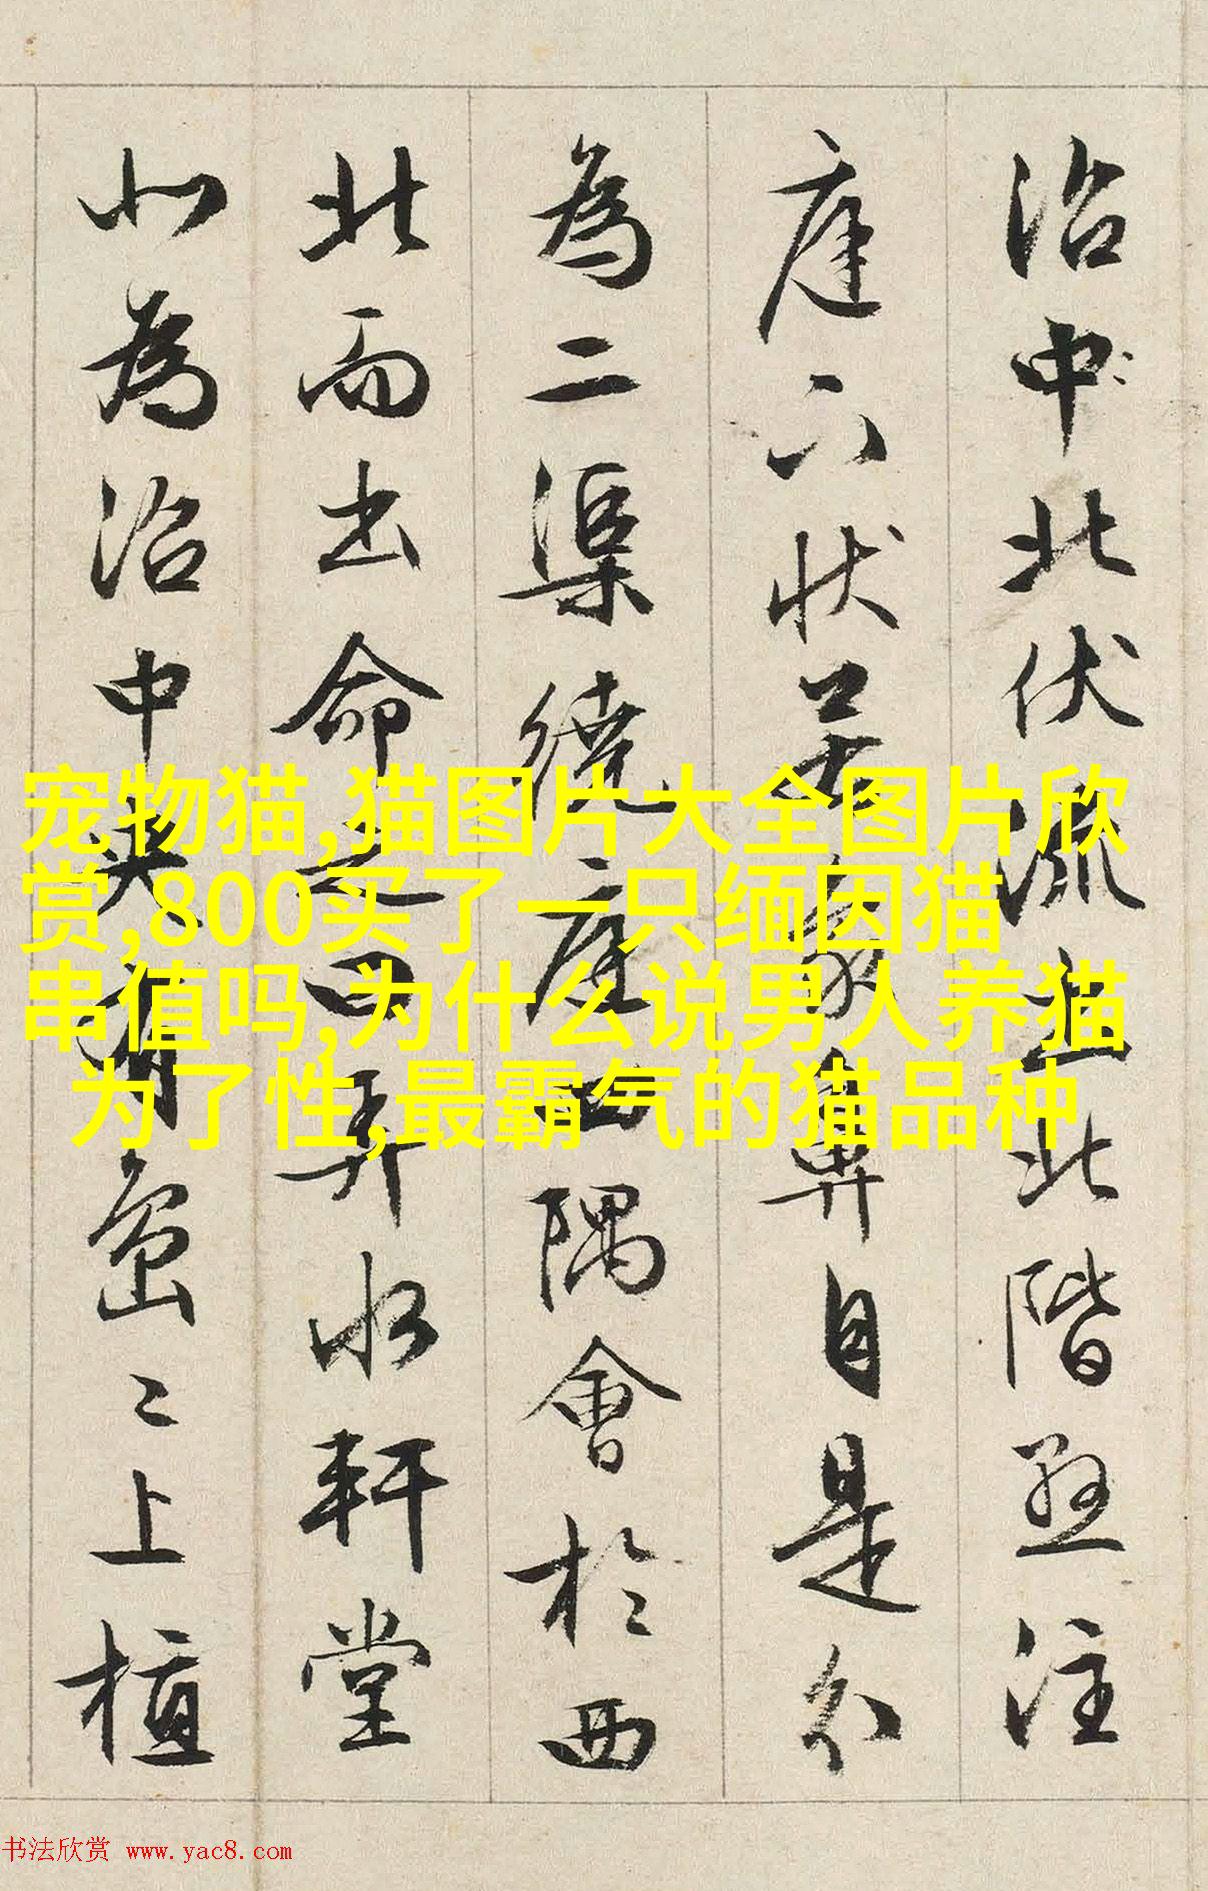 沼中北伏流出北階懸注
庭下状若象鼻自是分
為二渠繞庭四隅會於西
北而出命之曰弄水軒堂
北為沼中央有島〻上植
宠物猫,猫图片大全图片欣
赏,800买了一只缅因猫
串值吗,为什么说男人养猫
为了性,最霸气的猫品种
书法欣赏 www.yac8.com